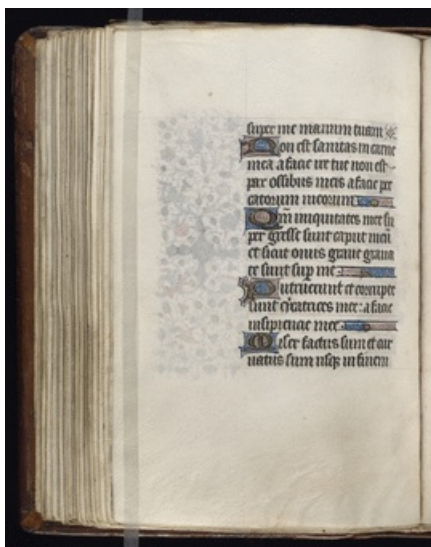 super me manum tuam
Non est sanitas in carne
mea a facie ire tue non est
pax ossibus meis a facie pec
catorum meorum
Qm̄ iniquitates mee su
per gresse sunt caput meū
et sicut onus graue graua
te sunt sup me
Putruerunt et corrupte
sunt cicatrices mee: a facie
insipiencie mee
Miser factus sum et cur
uatus sum usq; in finem